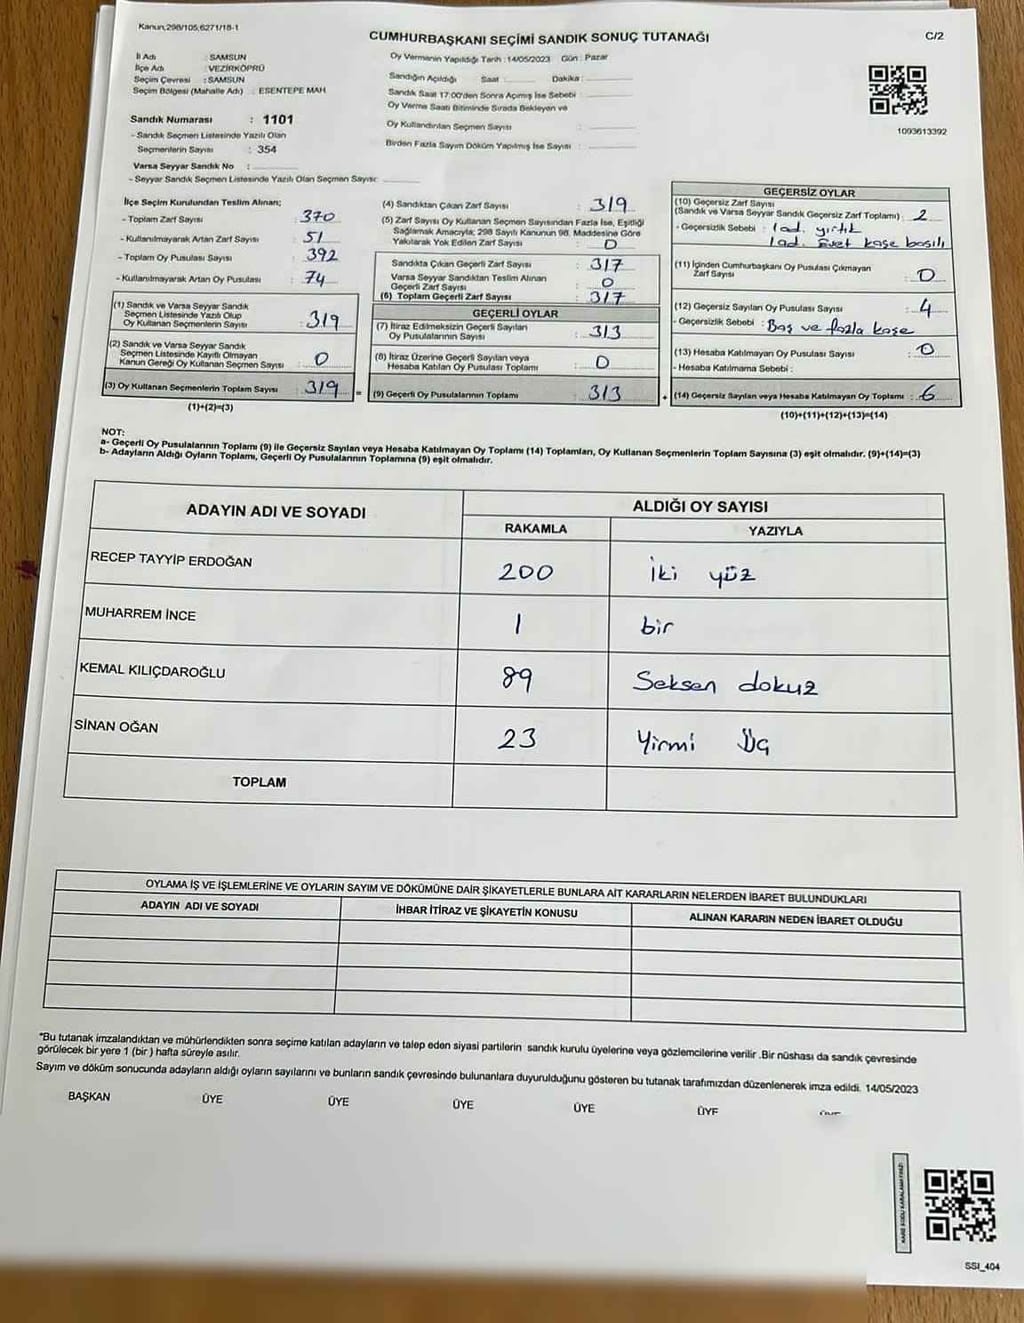 Kanun,298/105,6271/18-1
CUMHURBAŞKANI SEÇİMİ SANDIK SONUÇ TUTANAĞI
C/2
İl Adı : SAMSUN
İlçe Adı : VEZİRKÖPRÜ
Seçim Çevresi : SAMSUN
Seçim Bölgesi (Mahalle Adı) : ESENTEPE MAH.
Sandık Numarası : 1101
- Sandık Seçmen Listesinde Yazılı Olan
Seçmenlerin Sayısı : 354
Varsa Seyyar Sandık No :
- Seyyar Sandık Seçmen Listesinde Yazılı Olan Seçmen Sayısı:
Oy Vermenin Yapıldığı Tarih : 14/05/2023 Gün : Pazar
Sandığın Açıldığı Saat : Dakika :
Sandık Saat 17:00'den Sonra Açılmış İse Sebebi :
Oy Verme Saati Bitiminde Sırada Bekleyen ve
Oy Kullandırılan Seçmen Sayısı :
Birden Fazla Sayım Döküm Yapılmış İse Sayısı :
1093613392
İlçe Seçim Kurulundan Teslim Alınan;
- Toplam Zarf Sayısı : 370
- Kullanılmayarak Artan Zarf Sayısı : 51
- Toplam Oy Pusulası Sayısı : 392
- Kullanılmayarak Artan Oy Pusulası : 74
(1) Sandık ve Varsa Seyyar Sandık
Seçmen Listesinde Yazılı Olup
Oy Kullanan Seçmenlerin Sayısı : 319
(2) Sandık ve Varsa Seyyar Sandık
Seçmen Listesinde Kayıtlı Olmayan
Kanun Gereği Oy Kullanan Seçmen Sayısı : 0
(3) Oy Kullanan Seçmenlerin Toplam Sayısı : 319
(1)+(2)=(3)
(4) Sandıktan Çıkan Zarf Sayısı : 319
(5) Zarf Sayısı Oy Kullanan Seçmen Sayısından Fazla İse, Eşitliği
Sağlamak Amacıyla; 298 Sayılı Kanunun 98. Maddesine Göre
Yakılarak Yok Edilen Zarf Sayısı : 0
Sandıkta Çıkan Geçerli Zarf Sayısı : 317
Varsa Seyyar Sandıktan Teslim Alınan
Geçerli Zarf Sayısı : 0
(6) Toplam Geçerli Zarf Sayısı : 317
GEÇERLİ OYLAR
(7) İtiraz Edilmeksizin Geçerli Sayılan
Oy Pusulalarının Sayısı : 313
(8) İtiraz Üzerine Geçerli Sayılan veya
Hesaba Katılan Oy Pusulası Toplamı : 0
(9) Geçerli Oy Pusulalarının Toplamı : 313
GEÇERSİZ OYLAR
(10) Geçersiz Zarf Sayısı
(Sandık ve Varsa Seyyar Sandık Geçersiz Zarf Toplamı) : 2
- Geçersizlik Sebebi : 1 ad. yırtık
1 ad. Evet kaşe basılı
(11) İçinden Cumhurbaşkanı Oy Pusulası Çıkmayan
Zarf Sayısı : 0
(12) Geçersiz Sayılan Oy Pusulası Sayısı : 4
- Geçersizlik Sebebi : Boş ve fazla kaşe
(13) Hesaba Katılmayan Oy Pusulası Sayısı : 0
- Hesaba Katılmama Sebebi :
(14) Geçersiz Sayılan veya Hesaba Katılmayan Oy Toplamı : 6
(10)+(11)+(12)+(13)=(14)
NOT:
a- Geçerli Oy Pusulalarının Toplamı (9) ile Geçersiz Sayılan veya Hesaba Katılmayan Oy Toplamı (14) Toplamları, Oy Kullanan Seçmenlerin Toplam Sayısına (3) eşit olmalıdır. (9)+(14)=(3)
b- Adayların Aldığı Oyların Toplamı, Geçerli Oy Pusulalarının Toplamına (9) eşit olmalıdır.
ADAYIN ADI VE SOYADI
ALDIĞI OY SAYISI
RAKAMLA YAZIYLA
RECEP TAYYİP ERDOĞAN 200 iki yüz
MUHARREM İNCE 1 bir
KEMAL KILIÇDAROĞLU 89 Seksen dokuz
SİNAN OĞAN 23 Yirmi Üç
TOPLAM
OYLAMA İŞ VE İŞLEMLERİNE VE OYLARIN SAYIM VE DÖKÜMÜNE DAİR ŞİKAYETLERLE BUNLARA AİT KARARLARIN NELERDEN İBARET BULUNDUKLARI
ADAYIN ADI VE SOYADI İHBAR İTİRAZ VE ŞİKAYETİN KONUSU ALINAN KARARIN NEDEN İBARET OLDUĞU
*Bu tutanak imzalandıktan ve mühürlendikten sonra seçime katılan adayların ve talep eden siyasi partilerin sandık kurulu üyelerine veya gözlemcilerine verilir .Bir nüshası da sandık çevresinde
görülecek bir yere 1 (bir ) hafta süreyle asılır.
Sayım ve döküm sonucunda adayların aldığı oyların sayılarını ve bunların sandık çevresinde bulunanlara duyurulduğunu gösteren bu tutanak tarafımızdan düzenlenerek imza edildi. 14/05/2023
BAŞKAN ÜYE ÜYE ÜYE ÜYE ÜYE
SSI_404